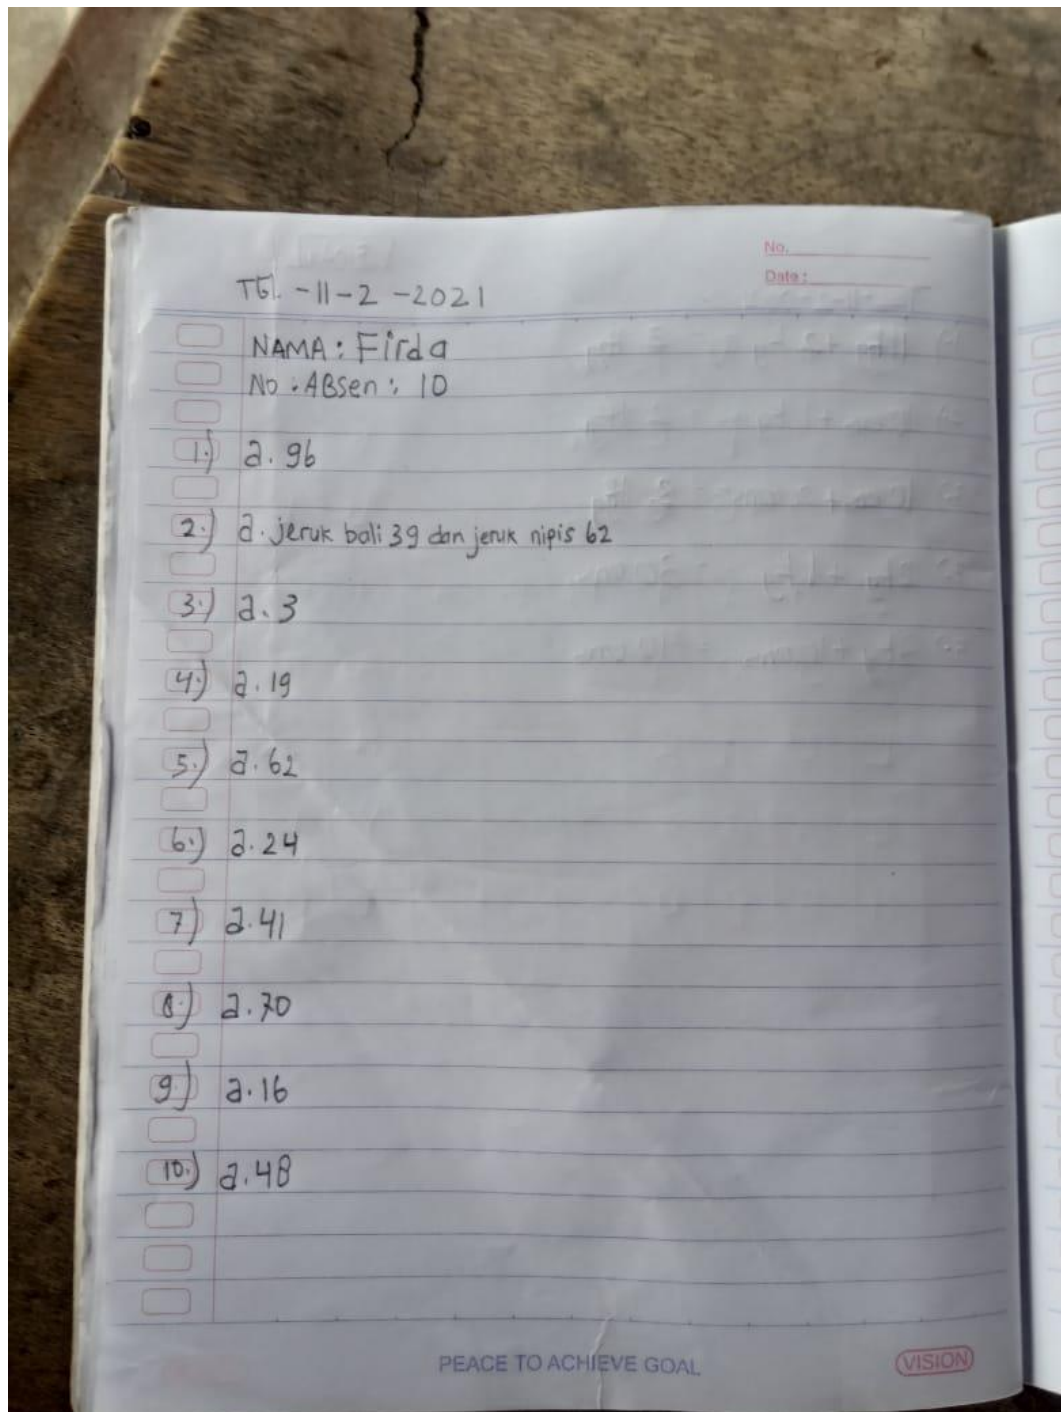 No.
Date:
TGL -11-2-2021
NAMA : Firda
No : ABsen : 10
1.) a. 96
2.) a. jeruk bali 39 dan jeruk nipis 62
3.) a. 3
4.) a. 19
5.) a. 62
6.) a. 24
7.) a. 41
8.) a. 70
9.) a. 16
10.) a. 48
PEACE TO ACHIEVE GOAL
VISION